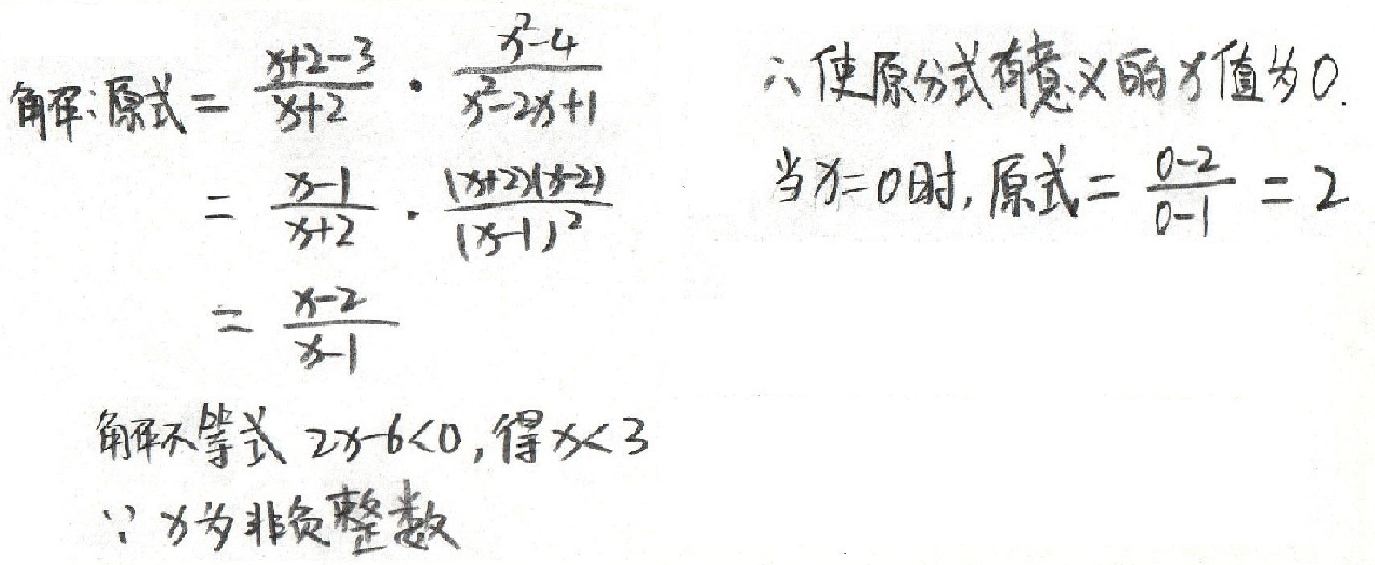 解:原式= \frac{x+2-3}{x+2} · \frac{x²-4}{x²-2x+1}
= \frac{x-1}{x+2} · \frac{(x+2)(x-2)}{(x-1)²}
= \frac{x-2}{x-1}
解不等式 2x-6<0,得x<3
∵ x为非负整数
∴使原分式有意义的x值为0.
当x=0时,原式= \frac{0-2}{0-1} = 2